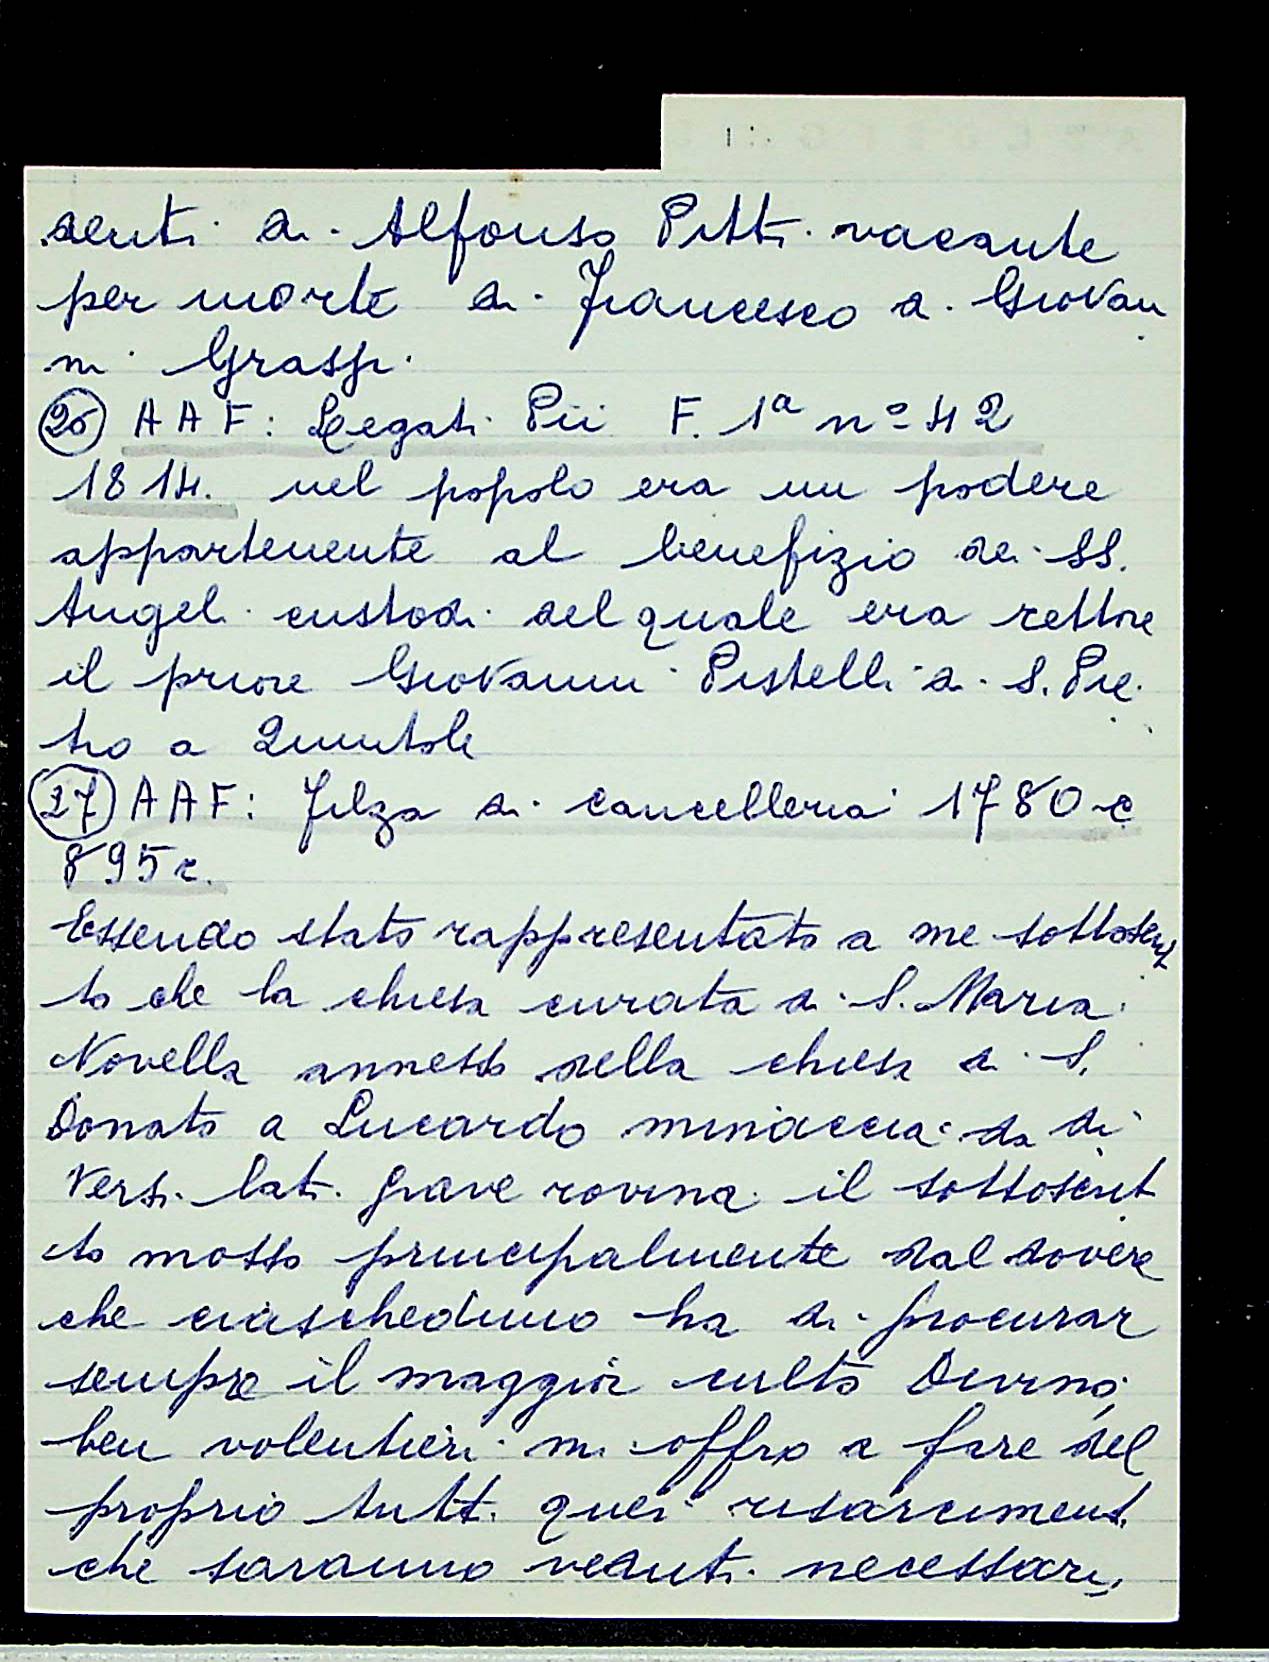 denti di Alfonso Pitti vacante
per morte di Francesco di Giovan
ni Grassi.
26 AAF: Legati Pii F. 1ª nº 42
1814. nel popolo era un podere
appartenente al benefizio dei SS.
Angeli custodi del quale era rettore
il priore Giovanni Pistelli di S. Pie
tro a Quintole
27 AAF: Filza di cancelleria 1780 c
895 r.
Essendo stato rappresentato a me sottoscrit
to che la chiesa curata di S. Maria
Novella annessa della chiesa di S.
Donato a Lucardo minaccia da di
versi lati grave rovina il sottoscrit
to mosso principalmente dal dovere
che ciascheduno ha di procurar
sempre il maggior culto Divino,
ben volentieri mi offro a fare del
proprio tutti quei risarcimenti
che saranno veduti necessari,